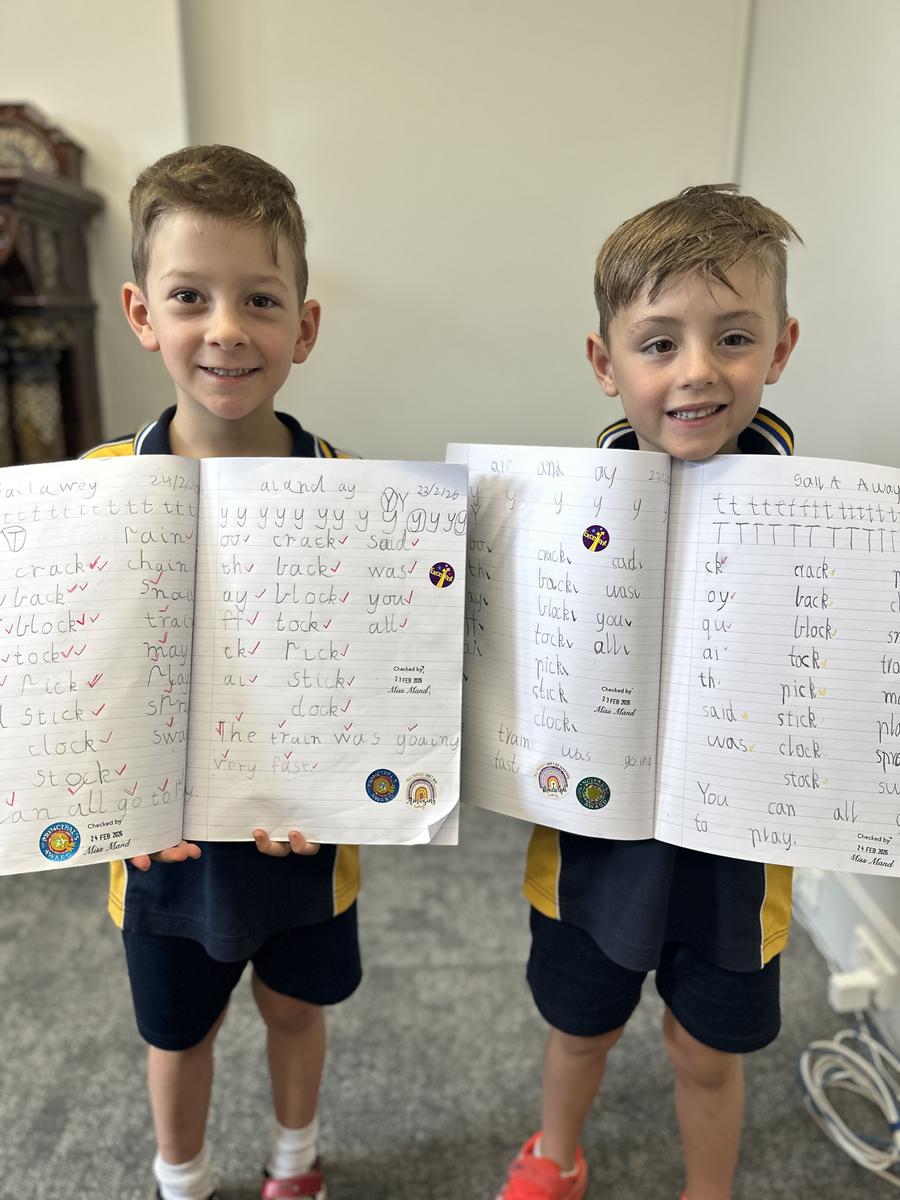 Sailawey 24/2/26
t t t t t t t t t t t
T rain
crack chain
back
block
tock may
rick
stick
clock
stock
can all go to
PRINCIPAL'S AWARD
Checked by
24 FEB 2026
Miss Mand
ai and ay Yy 23/2/26
y y y y y y y y y y y y
oo crack said
th back was
ay block you
ff tock all
ck rick
ai stick
dock
The train was goaing
very fast.
Checked by
23 FEB 2026
Miss Mand
Amazing
air and ay
y y y y y
crack sad
th back was
ay block you
ff tock all
ai pick
stick
clock
train was going
fast.
Checked by
23 FEB 2026
Miss Mand
Sail A Away
t t t t t t t t t t t t
T T T T T T T T T
ck crack
oy back
qu block
ai tock
th pick
said stick
was clock
stock
You can all
to play.
Checked by
24 FEB 2026
Miss Mand